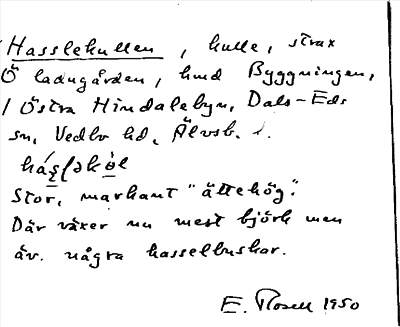 Hasslekullen, kulle, strax
Ö ladugården, hmd Byggningen,
i Östra Hindalebyn, Dals-Eds
sn, Vedbo hd, Älvsb. l.
Stor, markant "ättehög".
Där växer nu mest björk men
äv. några hasselbuskar.
E. Rosell 1950